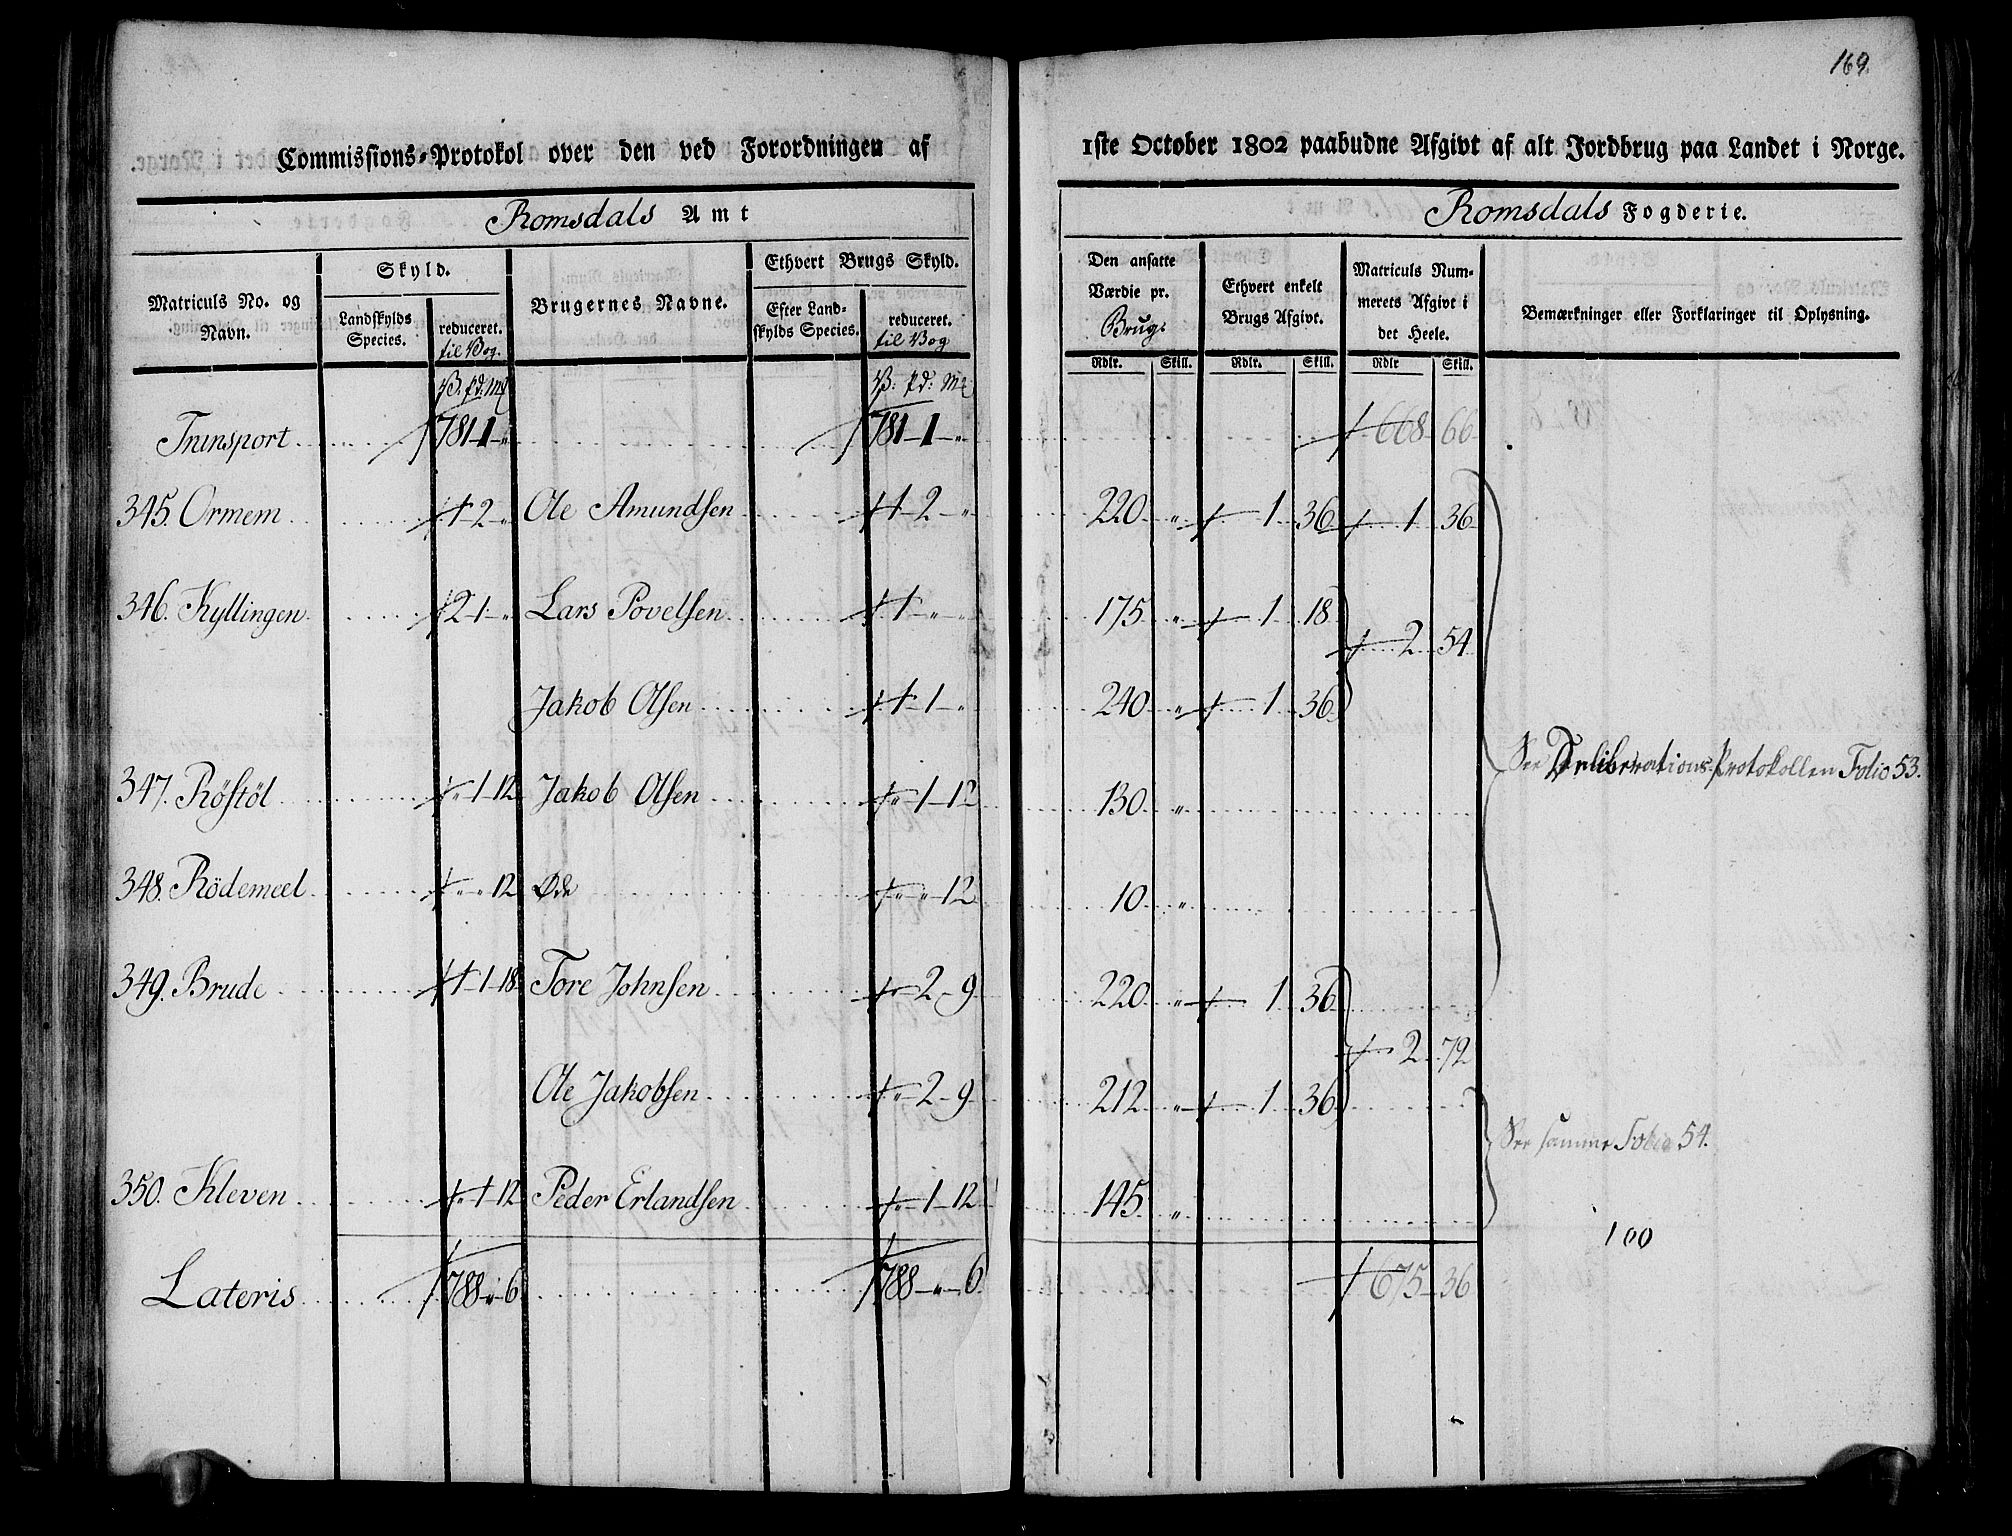 169.
Commissions-Protokol over den ved Forordningen af 1ste October 1802 paabudne Afgivt af alt Jordbrug paa Landet i Norge.
Romsdals Amt Romsdals Fogderie.
Matriculs No. og Navn.
Skyld.
Landskylds Species.
reduceret. til Vog.
Brugernes Navne.
Ethvert Brugs Skyld.
Efter Landskylds Species.
reduceret. til Vog
Den ansatte Værdie pr. Brug.
Ethvert enkelt Brugs Afgivt.
Matriculs Nummerets Afgivt i det Heele.
Bemærkninger eller Forklaringer til Oplysning.
Rdlr. Skill. Rdlr. Skill. Rdlr Skill.
V. pd: Mk V: pd: Mk
Transport 781-1-" 781-1-" 668 66
345. Ormem 1-2-" Ole Amundsen 1-2-" 220 " 1 36 1 36
346. Kyllingen 2-1-" Lars Povelsen 1-"-" 175 " 1 18
2 54
Jakob Olsen 1-1-" 240 " 1 36
See Deliberations-Protokollen Folio 53.
347. Röstöl "-1-12 Jakob Olsen "-1-12 130 "
348. Rödemeel "-"-12 Øde "-"-12 10 "
349. Brude 1-1-18 Tore Johnsen "-2-9 220 " 1 36
2 72
Ole Jakobsen "-2-9 212 " 1 36
See samme Folio 54.
350. Kleven "-1-12 Peder Erlandsen "-1-12 145 "
100
Lateris 788-"-6 788-"-6 675 36